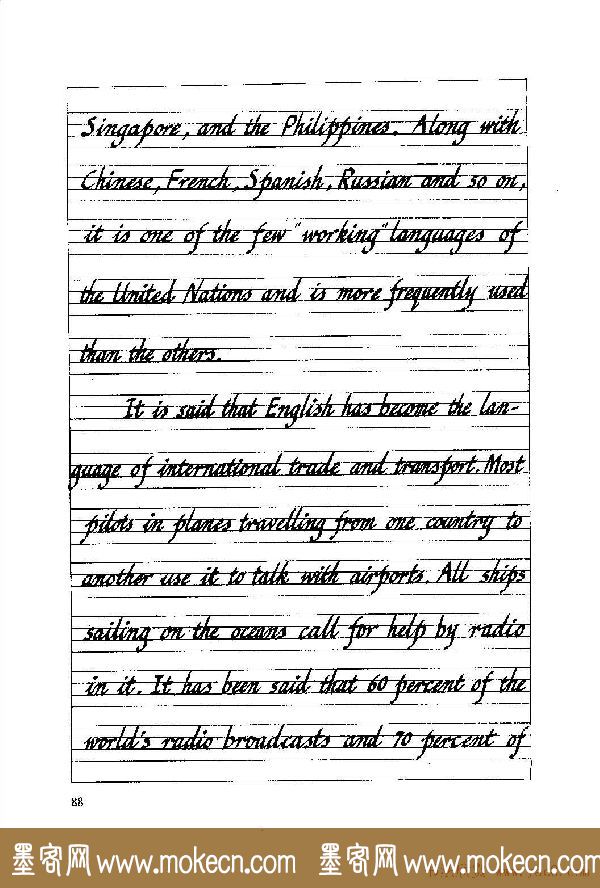 Singapore, and the Philippines. Along with
Chinese, French, Spanish, Russian and so on,
it is one of the few "working" languages of
the United Nations and is more frequently used
than the others.
It is said that English has become the lan-
guage of international trade and transport. Most
pilots in planes travelling from one country to
another use it to talk with airports. All ships
sailing on the oceans call for help by radio
in it. It has been said that 60 percent of the
world's radio broadcasts and 70 percent of
88
墨客网 www.mokecn.com 墨客网 www.mokecn.com